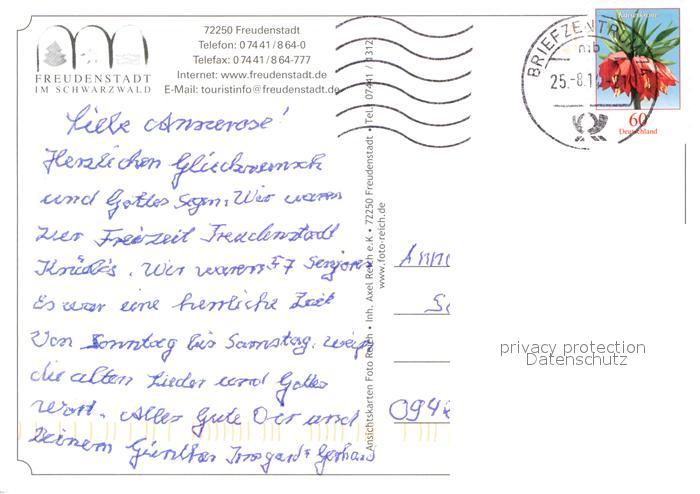 72250 Freudenstadt
Telefon: 07441/864-0
Telefax: 07441/864-777
Internet: www.freudenstadt.de
E-Mail: touristinfo@freudenstadt.de
FREUDENSTADT
IM SCHWARZWALD
Liebe Annerose!
Herzlichen Glückwunsch
und Gottes Segen. Wir waren
zur Freizeit Freudenstadt
Wir waren 57
Es war eine herrliche Zeit
Von Sonntag bis Samstag.
die alten Lieder und Gottes
Wort. Alles Gute Dir und
Deinem Günther Irmgard + Gerhard
Ansichtskarten Foto Reich • Inh. Axel Reich e.K. • 72250 Freudenstadt • Tel. 07441 / 1312
www.foto-reich.de
BRIEFZENTRUM
60
Deutschland
privacy protection
Datenschutz